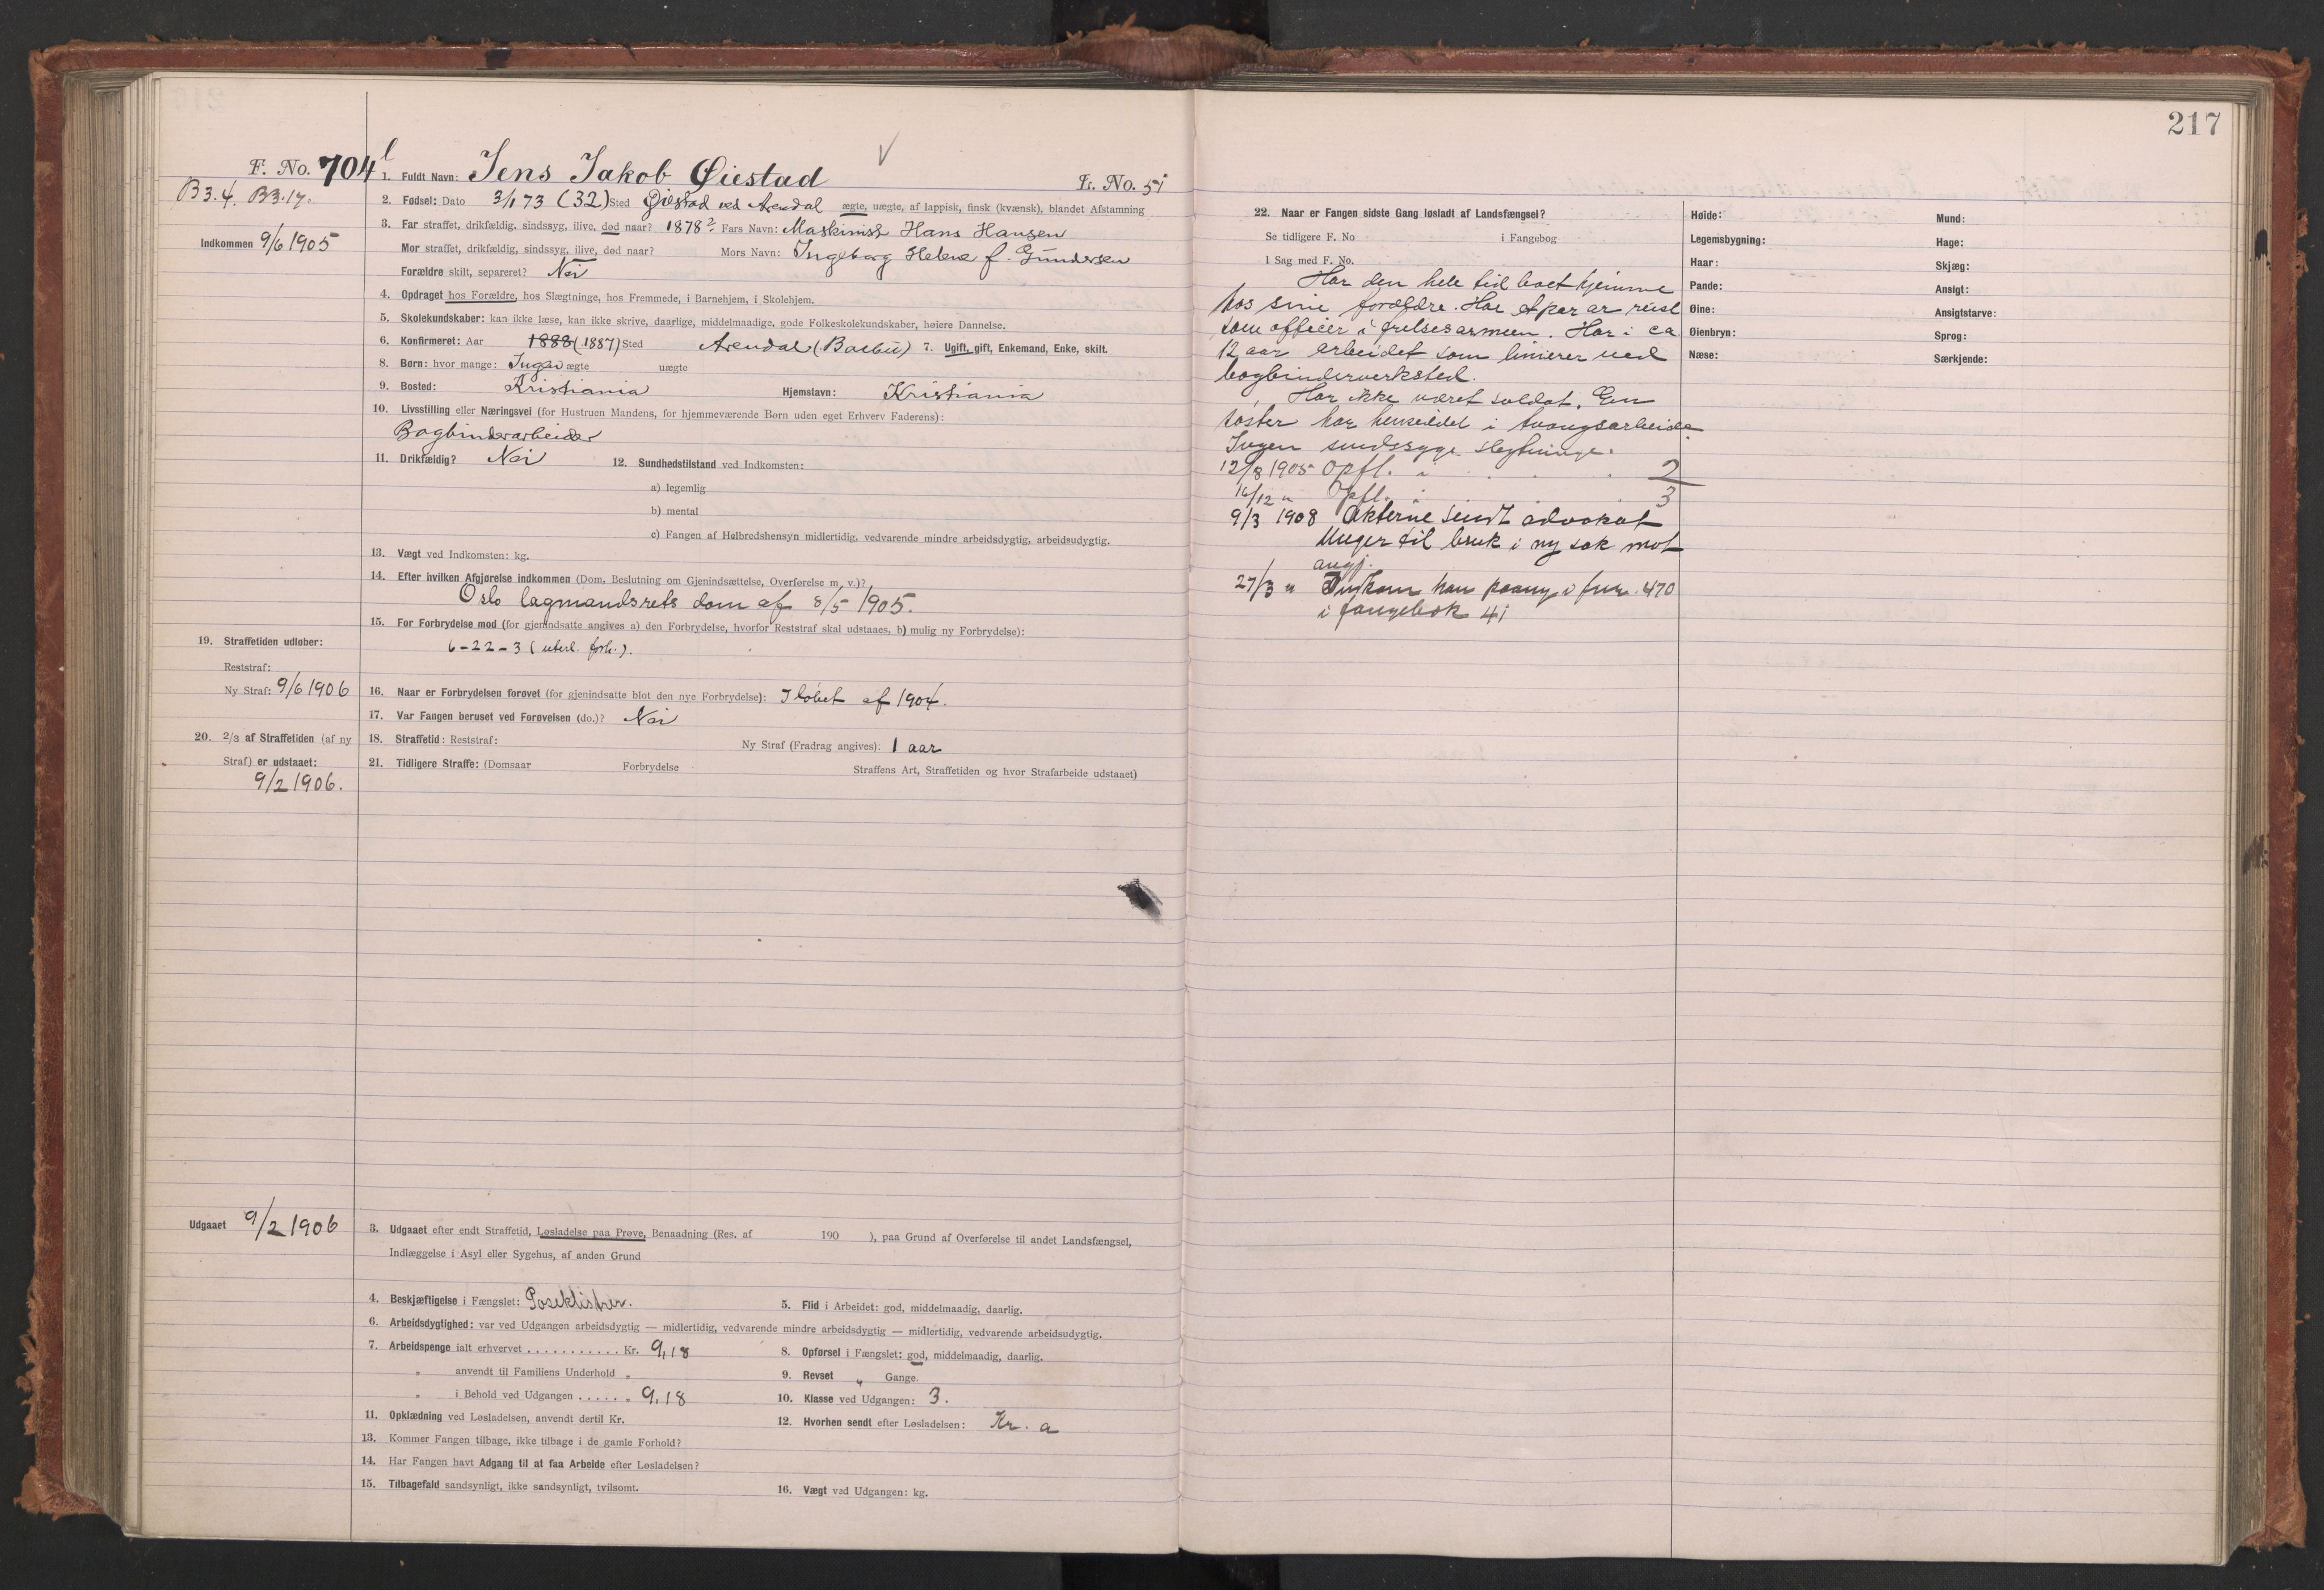 217
F. No. 704 l
B3.4. B3.17.
Indkommen 9/6 1905
1. Fuldt Navn: Jens Jakob Øiestad Fr. No. 5i
2. Fødsel: Dato 3/1 73 (32) Sted Øiestad ved Arendal ægte, uægte, af lappisk, finsk (kvænsk), blandet Afstamning
3. Far straffet, drikfældig, sindssyg, ilive, død naar? 1878? Fars Navn: Maskinist Hans Hansen
Mor straffet, drikfældig, sindssyg, ilive, død naar? Mors Navn: Ingeborg Helene f. Gundersen
Forældre skilt, separeret? Nei
4. Opdraget hos Forældre, hos Slægtninge, hos Fremmede, i Barnehjem, i Skolehjem.
5. Skolekundskaber: kan ikke læse, kan ikke skrive, daarlige, middelmaadige, gode Folkeskolekundskaber, høiere Dannelse.
6. Konfirmeret: Aar 1888 (1887) Sted Arendal (Barbu) 7. Ugift, gift, Enkemand, Enke, skilt.
8. Børn: hvor mange: Ingen ægte uægte
9. Bosted: Kristiania Hjemstavn: Kristiania
10. Livsstilling eller Næringsvei (for Hustruen Mandens, for hjemmeværende Børn uden eget Erhverv Faderens):
Bogbinderarbeider
11. Drikfældig? Nei 12. Sundhedstilstand ved Indkomsten:
a) legemlig
b) mental
c) Fangen af Helbredshensyn midlertidig, vedvarende mindre arbeidsdygtig, arbeidsudygtig.
13. Vægt ved Indkomsten: kg.
14. Efter hvilken Afgjørelse indkommen (Dom, Beslutning om Gjenindsættelse, Overførelse m. v.)?
Oslo lagmandsrets dom af 8/5 1905.
15. For Forbrydelse mod (for gjenindsatte angives a) den Forbrydelse, hvorfor Reststraf skal udstaaes, b) mulig ny Forbrydelse):
6-22-3 (uterl. forh.).
19. Straffetiden udløber:
Reststraf:
Ny Straf: 9/6 1906
16. Naar er Forbrydelsen forøvet (for gjenindsatte blot den nye Forbrydelse): I løbet af 1904.
17. Var Fangen beruset ved Forøvelsen (do.)? Nei
20. 2/3 af Straffetiden (af ny
Straf) er udstaaet:
9/2 1906.
18. Straffetid: Reststraf: Ny Straf (Fradrag angives): 1 aar
21. Tidligere Straffe: (Domsaar Forbrydelse Straffens Art, Straffetiden og hvor Strafarbeide udstaaet)
Udgaaet 9/2 1906
3. Udgaaet efter endt Straffetid, Løsladelse paa Prøve, Benaadning (Res. af 190 ), paa Grund af Overførelse til andet Landsfængsel,
Indlæggelse i Asyl eller Sygehus, af anden Grund
4. Beskjæftigelse i Fængslet: Poseklistrer. 5. Flid i Arbeidet: god, middelmaadig, daarlig.
6. Arbeidsdygtighed: var ved Udgangen arbeidsdygtig — midlertidig, vedvarende mindre arbeidsdygtig — midlertidig, vedvarende arbeidsudygtig.
7. Arbeidspenge ialt erhvervet ........... Kr. 9,18 8. Opførsel i Fængslet: god, middelmaadig, daarlig.
" anvendt til Familiens Underhold " 9. Revset " Gange.
" i Behold ved Udgangen ...... " 9,18 10. Klasse ved Udgangen: 3.
11. Opklædning ved Løsladelsen, anvendt dertil Kr. 12. Hvorhen sendt efter Løsladelsen: Kr. a
13. Kommer Fangen tilbage, ikke tilbage i de gamle Forhold?
14. Har Fangen havt Adgang til at faa Arbeide efter Løsladelsen?
15. Tilbagefald sandsynligt, ikke sandsynligt, tvilsomt. 16. Vægt ved Udgangen: kg.
22. Naar er Fangen sidste Gang løsladt af Landsfængsel?
Se tidligere F. No i Fangebog
I Sag med F. No.
Har den hele tid boet hjemme
hos sine forældre. Har et par år reist
som officer i frelsesarmeen. Har i ca
12 aar arbeidet som linierer ved
bogbinderverksted.
Har ikke været soldat. En
søster har hensiddet i tvangsarbeide.
Ingen sindssyge slegtninge.
12/8 1905 Opfl. i . . . 2
16/12 " Opfl. i 3
9/3 1908 Akterne sendt advokat
til bruk i ny sak mot
angj.
27/3 " Indkom han paany i fnr. 470
i fangebok 4i
Høide:
Legemsbygning:
Haar:
Pande:
Øine:
Øienbryn:
Næse:
Mund:
Hage:
Skjæg:
Ansigt:
Ansigtstarve:
Sprog:
Særkjende: